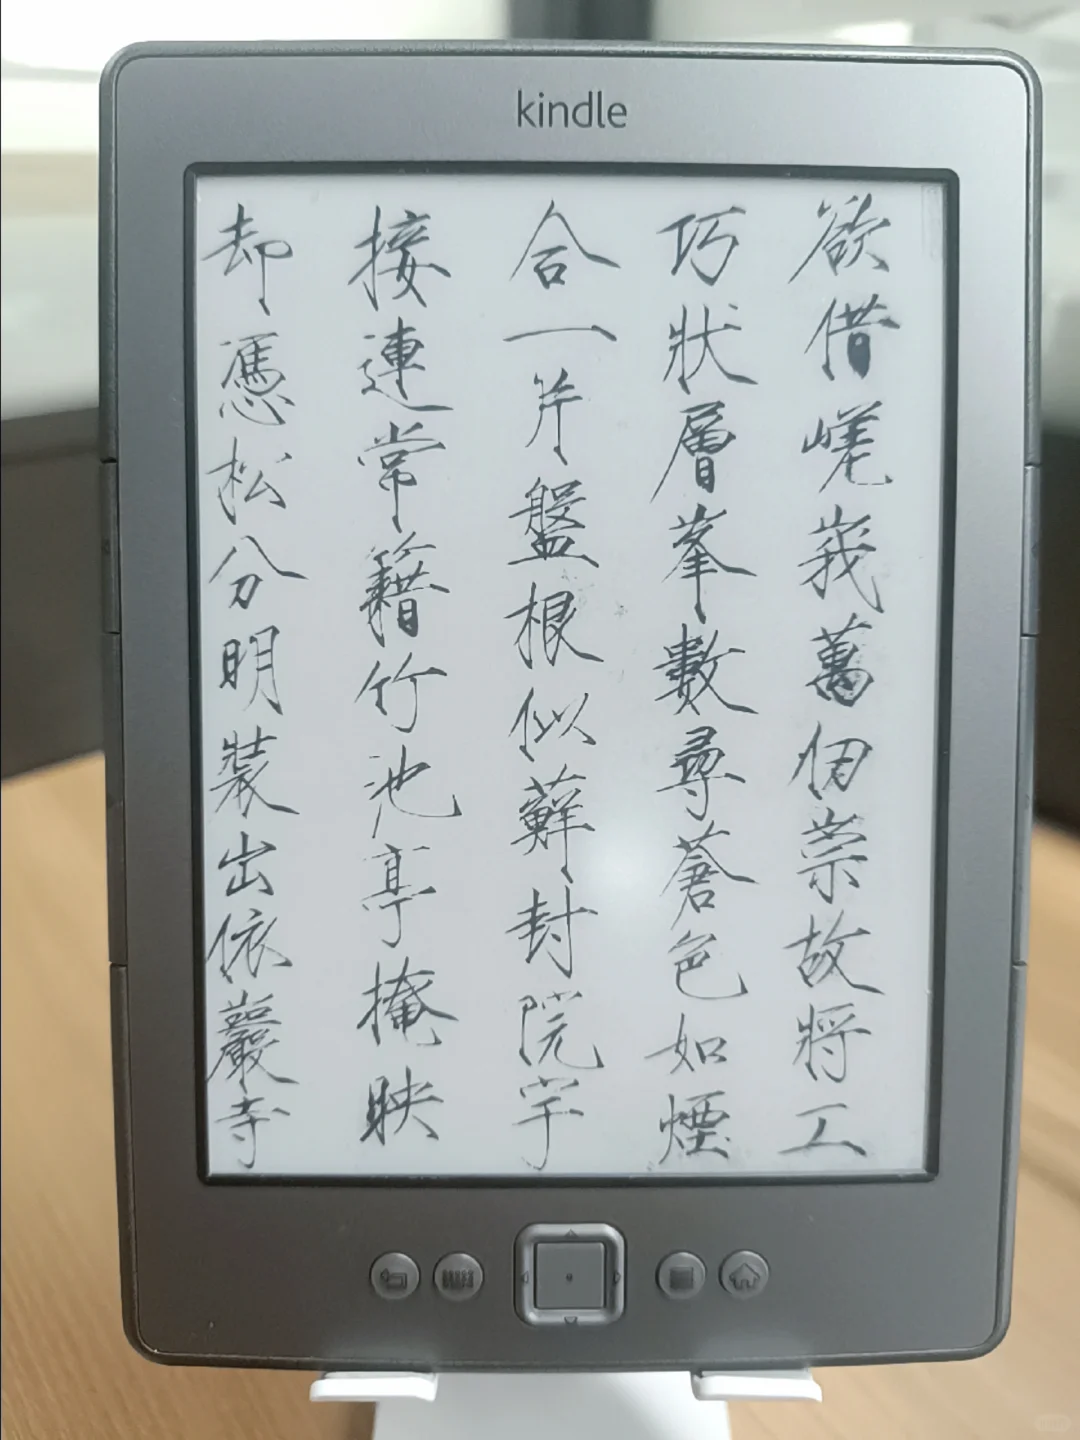 kindle
欲借嵯峩萬仞崇故將工
巧狀層峯數尋蒼色如煙
合一片盤根似蘚封院宇
接連常籍竹池亭掩映
却憑松分明裝出依巖寺